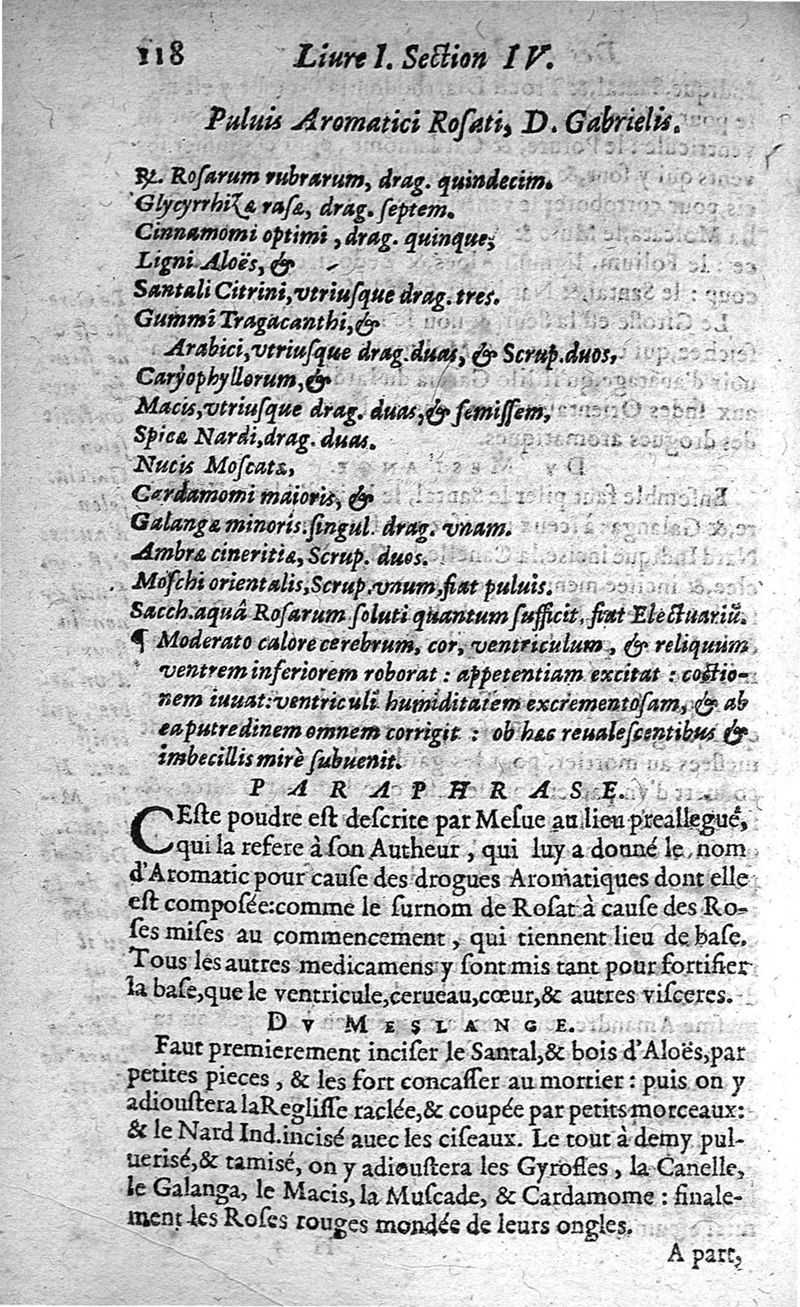 118 Liure I. Section IV.
Puluis Aromatici Roſati, D. Gabrielis.
℞. Roſarum rubrarum, drag. quindecim.
Glycyrrhizæ raſæ, drag. ſeptem.
Cinnamomi optimi, drag. quinque;
Ligni Aloës, &
Santali Citrini, vtriuſque drag. tres.
Gummi Tragacanthi, &
Arabici, vtriuſque drag. duas, & Scrup. duos,
Caryophyllorum, &
Macis, vtriuſque drag. duas, & ſemiſſem,
Spicæ Nardi, drag. duas.
Nucis Moſcatæ,
Cardamomi maioris, &
Galangæ minoris. ſingul. drag. vnam.
Ambræ cineritiæ, Scrup. duos.
Moſchi orientalis, Scrup. vnum, fiat puluis.
Sacch. aquâ Roſarum ſoluti quantum ſufficit, fiat Electuariũ.
¶ Moderato calore cerebrum, cor, ventriculum, & reliquum
ventrem inferiorem roborat : appetentiam excitat : coctio-
nem iuuat: ventriculi humiditatem excrementoſam, & ab
ea putredinem omnem corrigit : ob hæc reualeſcentibus &
imbecillis mirè ſubuenit.
PARAPHRASE.
CEſte poudre eſt deſcrite par Meſue au lieu preallegué,
qui la refere à ſon Autheur, qui luy a donné le nom
d'Aromatic pour cauſe des drogues Aromatiques dont elle
eſt compoſée: comme le ſurnom de Roſat à cauſe des Ro-
ſes miſes au commencement, qui tiennent lieu de baſe.
Tous les autres medicamens y ſont mis tant pour fortifier
la baſe, que le ventricule, cerueau, cœur, & autres viſceres.
DV MESLANGE.
Faut premierement inciſer le Santal, & bois d'Aloës, par
petites pieces, & les fort concaſſer au mortier : puis on y
adiouſtera la Regliſſe raclée, & coupée par petits morceaux:
& le Nard Ind. inciſé auec les ciſeaux. Le tout à demy pul-
ueriſé, & tamiſé, on y adiouſtera les Gyrofles, la Canelle,
le Galanga, le Macis, la Muſcade, & Cardamome : finale-
ment les Roſes rouges mondée de leurs ongles.
A part,